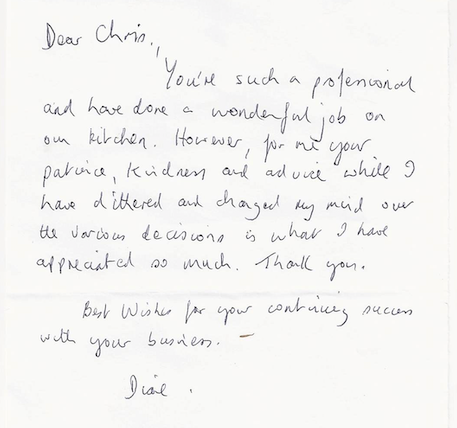 Dear Chris,
You're such a professional
and have done a wonderful job on
our kitchen. However, for me your
patience, kindness and advice while I
have dithered and changed my mind over
the various decisions is what I have
appreciated so much. Thank you.
Best Wishes for your continuing success
with your business. -
Diane.